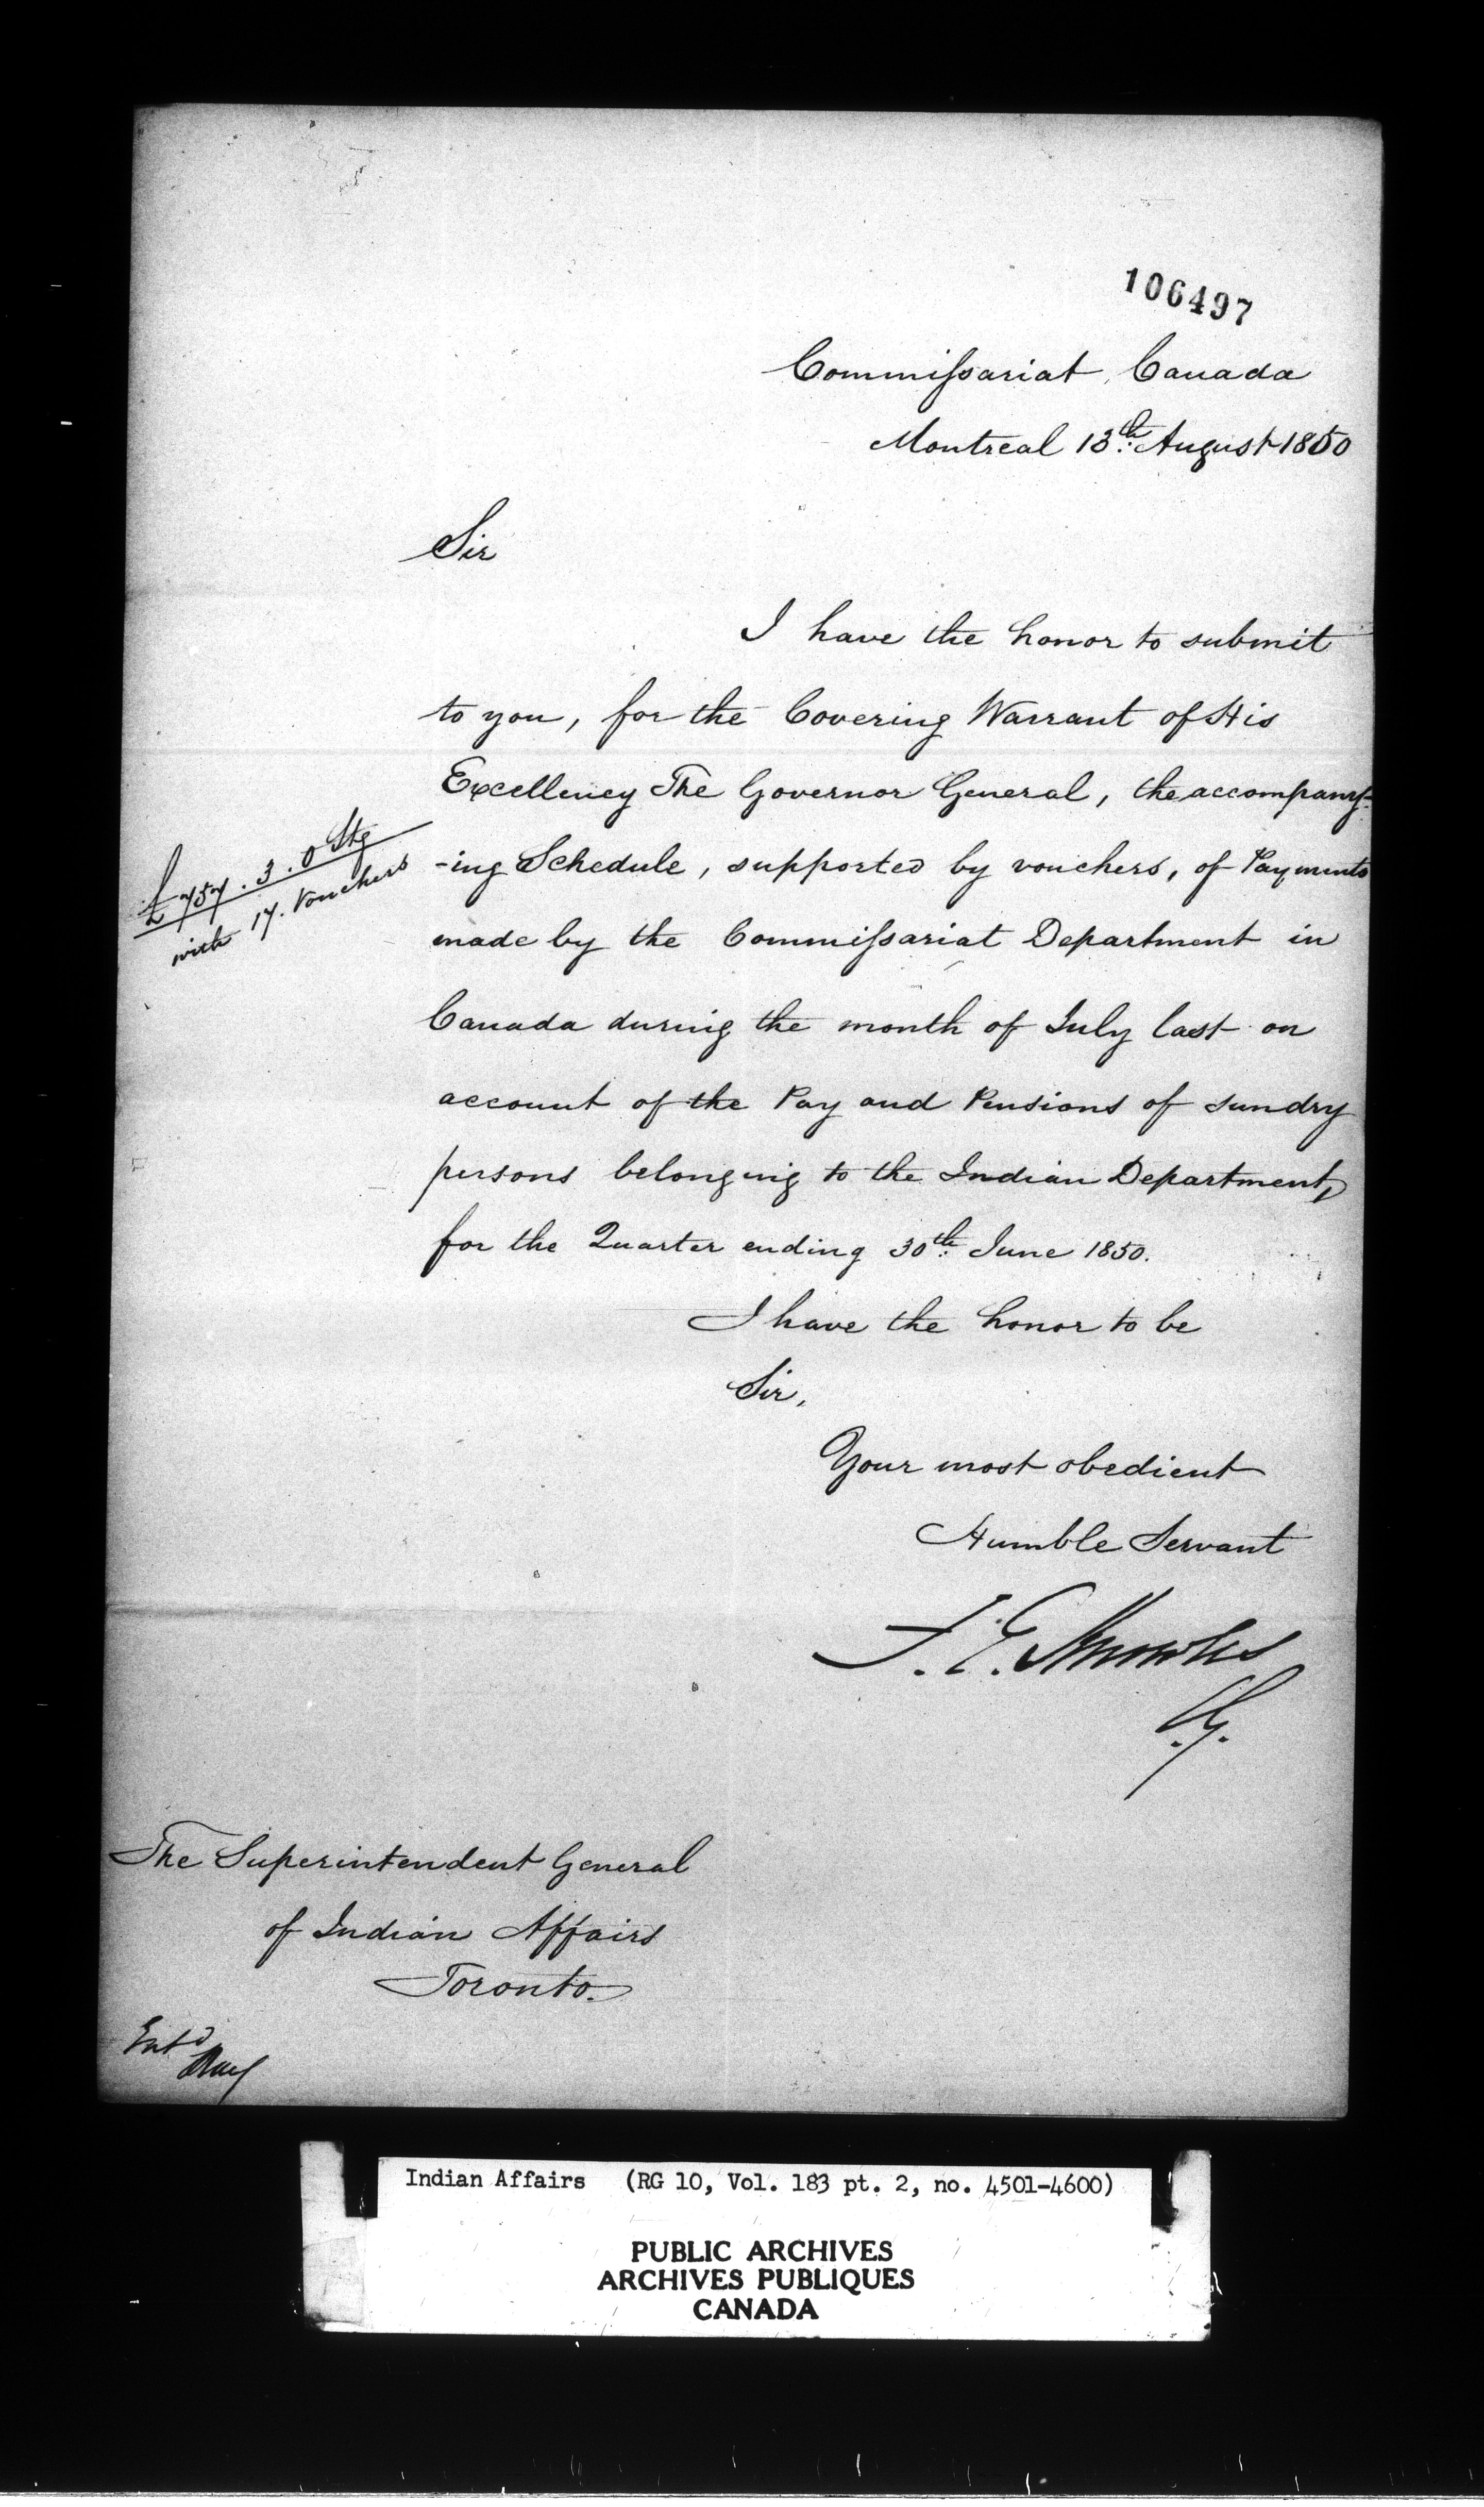 106497
Commissariat, Canada
Montreal 13th August 1850
Sir
I have the honor to submit
to you, for the Covering Warrant of His
Excellency The Governor General, the accompany-
-ing Schedule, supported by vouchers, of Payments
made by the Commissariat Department in
Canada during the month of July last on
account of the Pay and Pensions of sundry
persons belonging to the Indian Department,
for the Quarter ending 30th June 1850.
£757.3.0 Stg
with 17. Vouchers
I have the honor to be
Sir,
Your most obedient
Humble Servant
C.G.
The Superintendent General
of Indian Affairs
Toronto.
Entd
Indian Affairs (RG 10, Vol. 183 pt. 2, no. 4501-4600)
PUBLIC ARCHIVES
ARCHIVES PUBLIQUES
CANADA